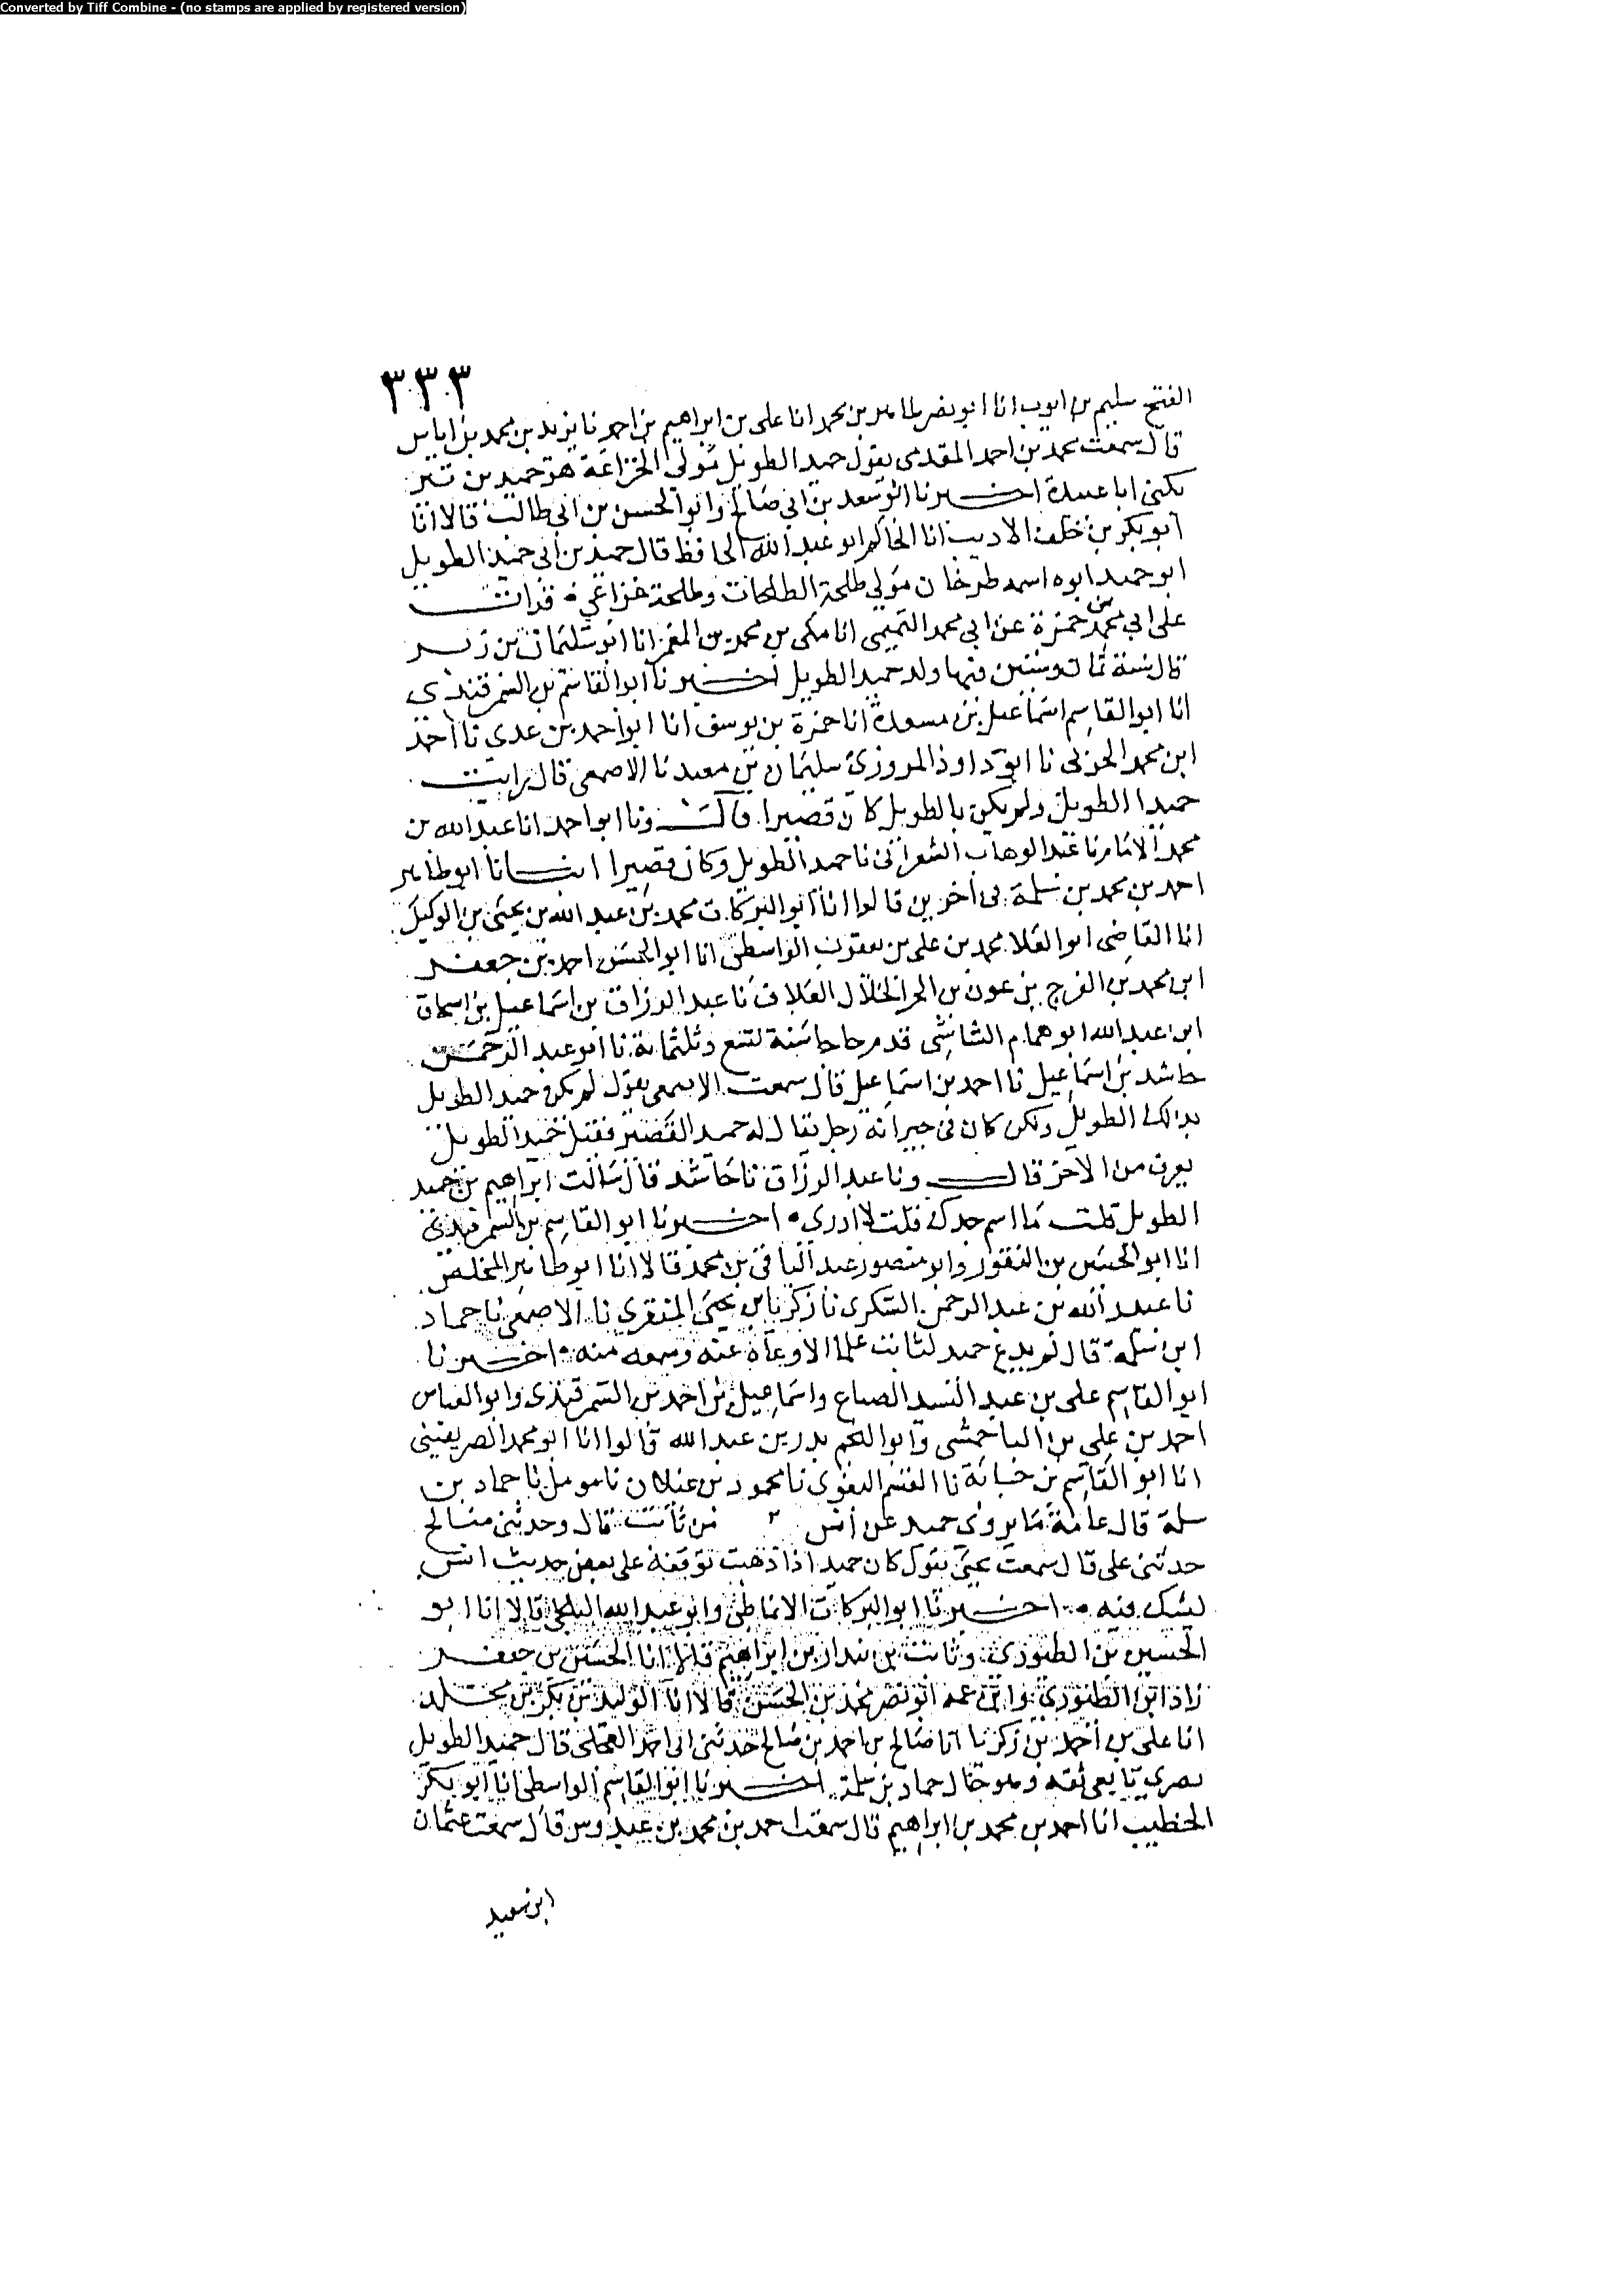 Converted by Tiff Combine - (no stamps are applied by registered version)
٣٣٣
الفتح سليم بن ايوب انا ابو نصر طاهر بن محمد انا على بن ابراهيم بن احمد نا يزيد بن محمد بن اياس
قال سمعت محمد بن احمد المقدمى يقول حميد الطويل مولى الخزاعة هو حميد بن تير
يكنى ابا عبيدة اخبرنا ابو سعد بن ابى صالح وابو الحسن بن ابى طالب قالا انا
ابو بكر بن خلف الاديب انا الحاكم ابو عبد الله الحافظ قال حميد بن ابى حميد الطويل
ابو حميد ابوه اسمه طرخان مولى طلحة الطلحات وطلحة خزاعي قرات
على ابى محمد بن حمزة عن ابى محمد التميمى انا مكى بن محمد بن الغمر انا ابو سليمان بن زبر
قال سنة ثمان وستين فيها ولد حميد الطويل اخبرنا ابو القاسم بن السمرقندى
انا ابو القاسم اسماعيل بن مسعدة انا حمزة بن يوسف انا ابو احمد بن عدى نا احمد
ابن محمد الحربى نا ابو داوذ المروزى سليمان بن معبد نا الاصمعى قال رايت
حميدا الطويل ولم يكن بالطويل كان قصيرا قال ونا ابو احمد انا عبد الله بن
محمد نا عبد الوهاب الشعرانى نا حميد الطويل وكان قصيرا انبانا ابو طاهر
احمد بن محمد بن سلمة فى اخرين قالوا انا ابو البركات محمد بن عبد الله بن يحيى بن الوكيل
انا القاضى ابو العلا محمد بن على بن يعقوب الواسطى انا ابو الحسن احمد بن جعفر
ابن محمد بن الفرج بن عون بن الخلال العلاف نا عبد الرزاق بن اسماعيل بن اسحاق
ابن عبد الله ابو همام الشاشى قدم حاجا سنة تسع وثلثماية نا ابو عبد الرحمن
حاشد بن اسماعيل نا احمد بن اسماعيل قال سمعت الاصمعى يقول لم يكن حميد الطويل
بذاك الطويل ولكن كان فى جيرانه رجل يقال له حميد القصير فقيل حميد الطويل
يعرف من الاخر قال ونا عبد الرزاق نا حاشد قال سالت ابراهيم بن حميد
الطويل قلت ما اسم جدك قلت لا ادرى اخبرنا ابو القاسم بن السمرقندى
انا ابو الحسين بن النقور وابو منصور عبد الباقى بن محمد قالا انا ابو طاهر المخلص
نا عبيد الله بن عبد الرحمن السكرى نا زكريا بن يحيى المنقرى نا الاصمعى نا حماد
ابن سلمة قال لم يدع حميد لثابت علما الا وعاه عنه وسمعه منه اخبرنا
ابو القاسم على بن عبد السيد الصباغ واسماعيل بن احمد بن السمرقندى وابو العباس
احمد بن على بن الباخمشى وابو النجم بدر بن عبد الله قالوا انا ابو محمد الصريفينى
انا ابو القاسم بن حبابة نا ابو القسم البغوى نا محمود بن غيلان نا مومل نا حماد بن
سلمة قال عامة ما يروى حميد عن انس من ثابت قال وحدثنى صالح
حدثنى على قال سمعت يحيى يقول كان حميد اذا ذهبت توقفه على بعض حديث انس
يشك فيه اخبرنا ابو البركات الانماطى وابو عبد الله البلخى قالا انا ابو
الحسين بن الطيورى وثابت بن بندار بن ابراهيم قالا انا الحسين بن جعفر
زاد ابن الطيورى وابن عمه ابو نصر محمد بن الحسن قالا انا الوليد بن بكر بن مخلد
انا على بن احمد بن زكريا انا صالح بن احمد بن صالح حدثنى ابى احمد العجلى قال حميد الطويل
بصرى تابعى ثقه وهو خال حماد بن سلمة اخبرنا ابو القاسم الواسطى انا ابو بكر
الخطيب انا احمد بن محمد بن ابراهيم قال سمعت احمد بن محمد بن عبدوس قال سمعت عثمان
ابن سعيد